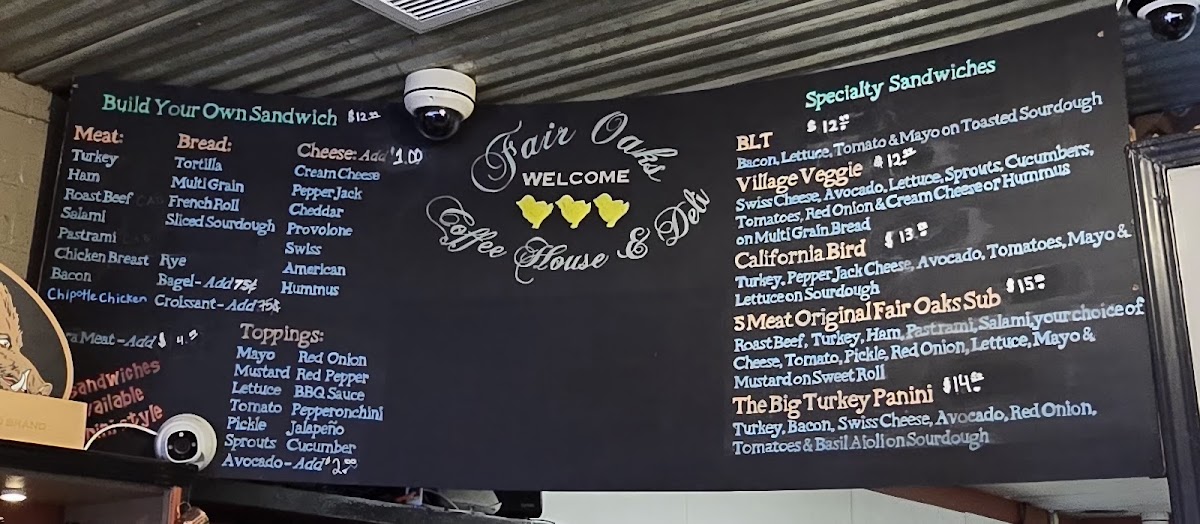 Build Your Own Sandwich $12.00
Meat:
Turkey
Ham
Roast Beef
Salami
Pastrami
Chicken Breast
Bacon
Chipotle Chicken
Meat - Add $ 4.
Sandwiches
Bread:
Tortilla
Multi Grain
French Roll
Sliced Sourdough
Rye
Bagel - Add 75¢
Croissant - Add 75¢
Cheese: Add $1.00
Cream Cheese
Pepper Jack
Cheddar
Provolone
Swiss
American
Hummus
Toppings:
Mayo
Mustard
Lettuce
Tomato
Pickle
Sprouts
Avocado - Add $2.00
Red Onion
Red Pepper
BBQ Sauce
Pepperonchini
Jalapeño
Cucumber
Fair Oaks
WELCOME
Coffee House & Deli
Specialty Sandwiches
BLT $12.00
Bacon, Lettuce, Tomato & Mayo on Toasted Sourdough
Village Veggie $12.00
Swiss Cheese, Avocado, Lettuce, Sprouts, Cucumbers,
Tomatoes, Red Onion & Cream Cheese or Hummus
on Multi Grain Bread
California Bird $13.00
Turkey, Pepper Jack Cheese, Avocado, Tomatoes, Mayo &
Lettuce on Sourdough
5 Meat Original Fair Oaks Sub $15.00
Roast Beef, Turkey, Ham, Pastrami, Salami, your choice of
Cheese, Tomato, Pickle, Red Onion, Lettuce, Mayo &
Mustard on Sweet Roll
The Big Turkey Panini $14.00
Turkey, Bacon, Swiss Cheese, Avocado, Red Onion,
Tomatoes & Basil Aioli on Sourdough
BRAND